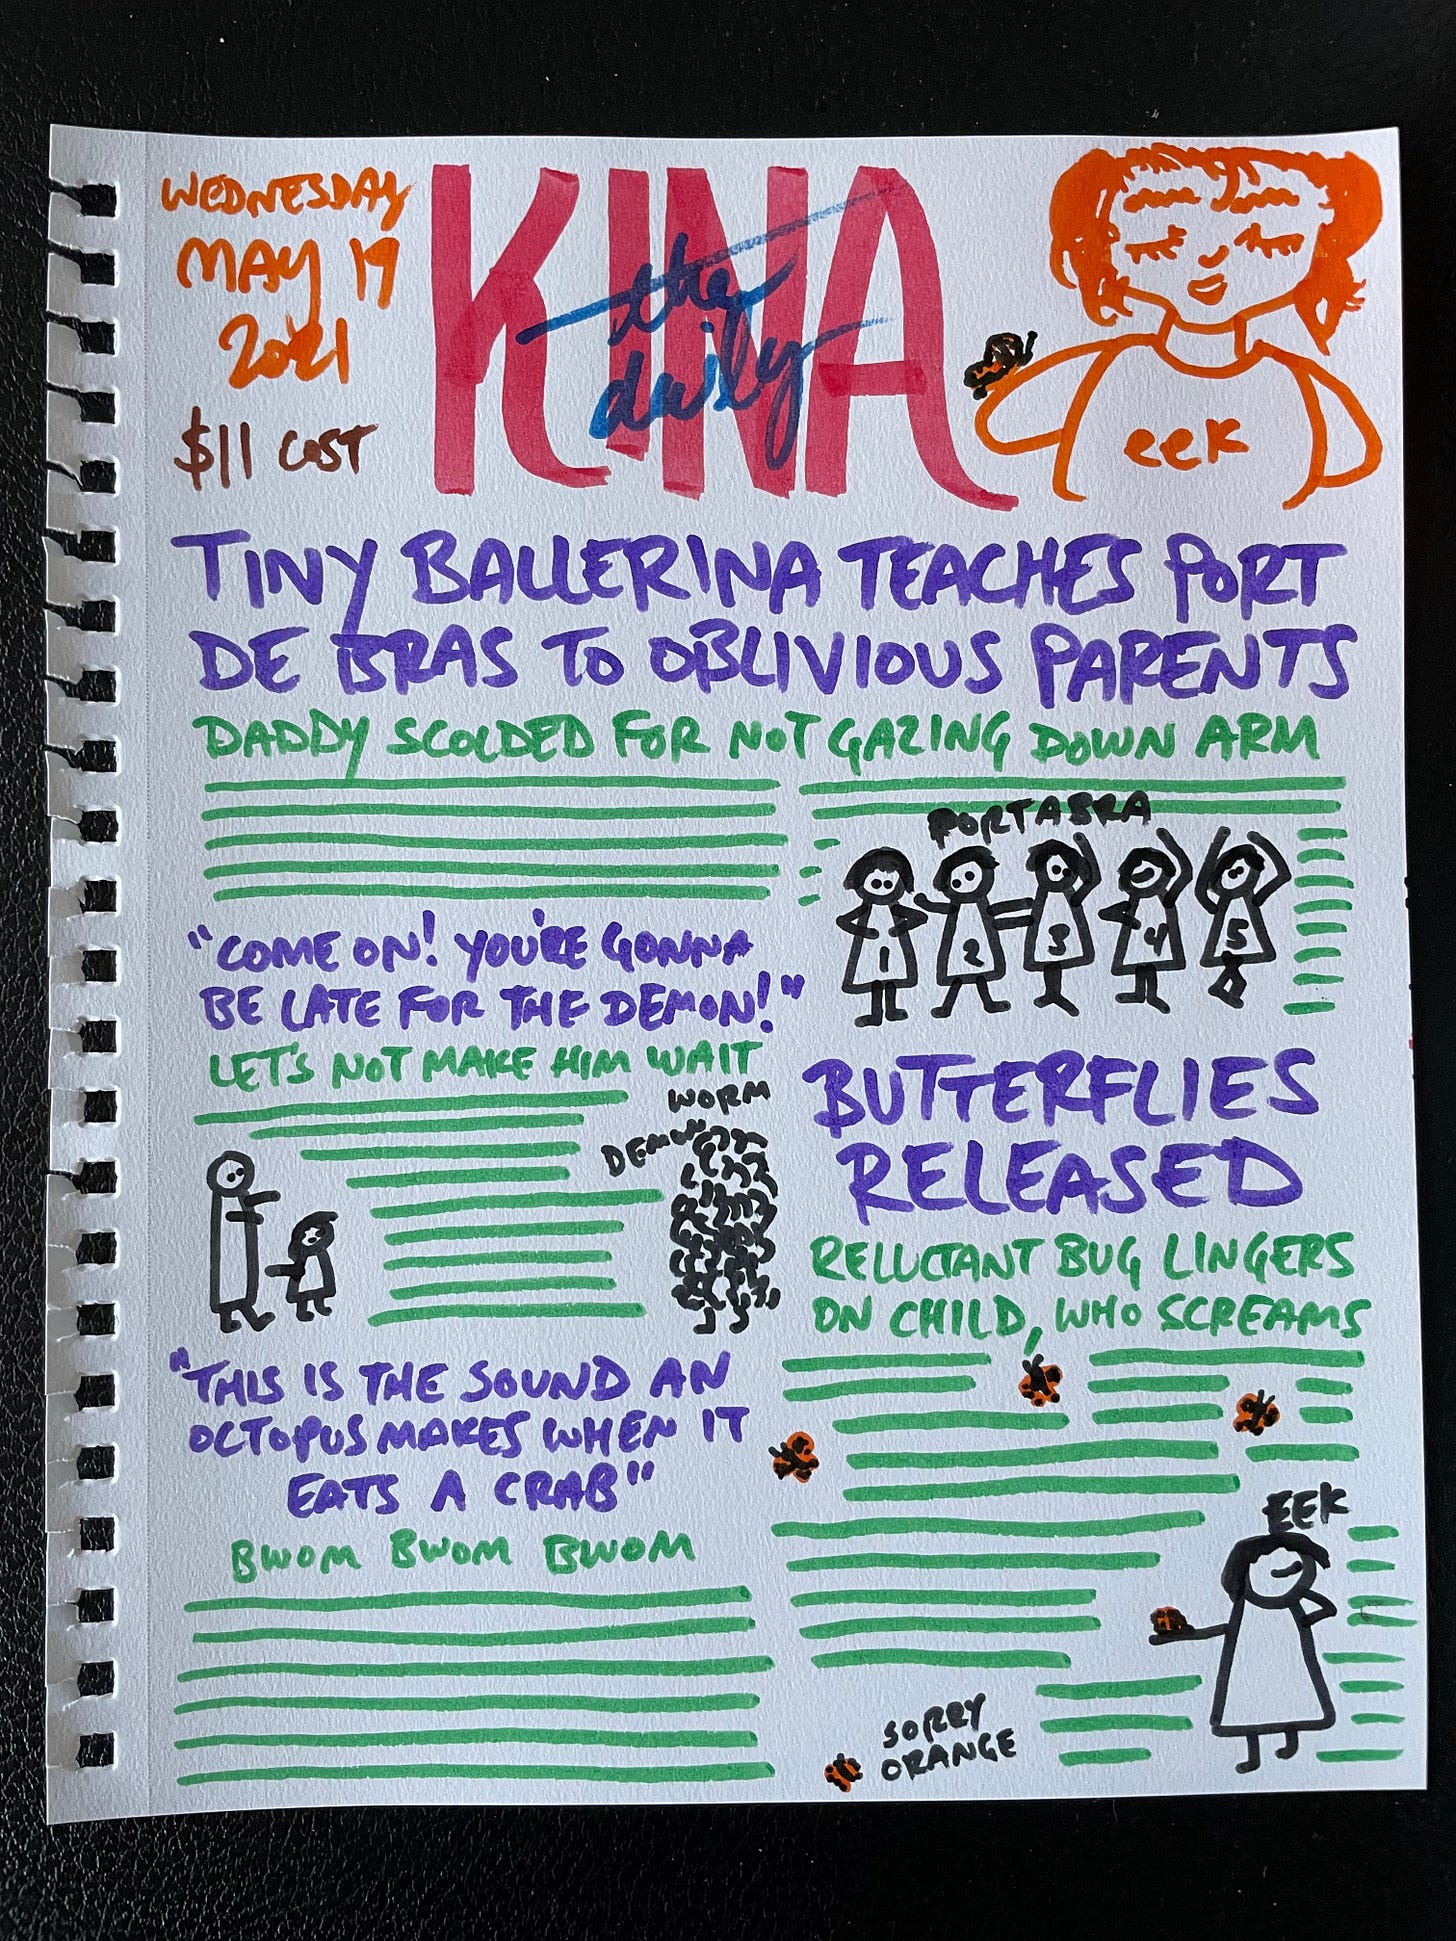 WEDNESDAY
MAY 19
2021
$11 COST
the
daily
KINA
eek
TINY BALLERINA TEACHES PORT
DE BRAS TO OBLIVIOUS PARENTS
DADDY SCOLDED FOR NOT GAZING DOWN ARM
PORTABRA
1 2 3 4 5
"COME ON! YOU'RE GONNA
BE LATE FOR THE DEMON!"
LET'S NOT MAKE HIM WAIT
WORM
DEMON
"THIS IS THE SOUND AN
OCTOPUS MAKES WHEN IT
EATS A CRAB"
BWOM BWOM BWOM
BUTTERFLIES
RELEASED
RELUCTANT BUG LINGERS
ON CHILD, WHO SCREAMS
EEK
SORRY
ORANGE